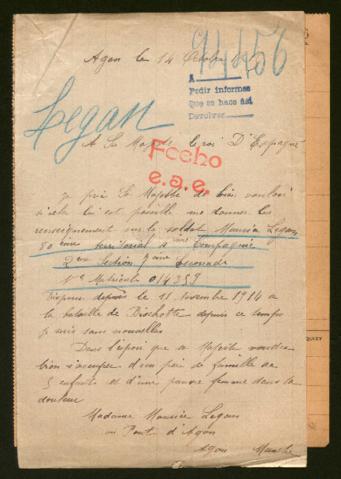 Agon le 14 Octobre
94456
A
Pedir informes
Que se hace así
Devolver
Legan
A Sa Majesté le roi D'Espagne
Fecho
e.a.e.
Je prie Sa Majesté de bien vouloir
si cela lui est possible me donner les
renseignement sur le soldat Maurice Legan
80 ème territorial Compagnie
2eme Section 7 ème Escouade
Nº Matricule 014353
Disparu depuis le 11 novembre 1914 a
la bataille de Bischotte depuis ce temps
je suis sans nouvelles
Dans l'espoir que sa Majesté voudra
bien s'occuper d'un père de famille de
5 enfants et d'une pauvre femme dans la
douleur
Madame Maurice Legan
au Pont d'Agon
Agon Manche